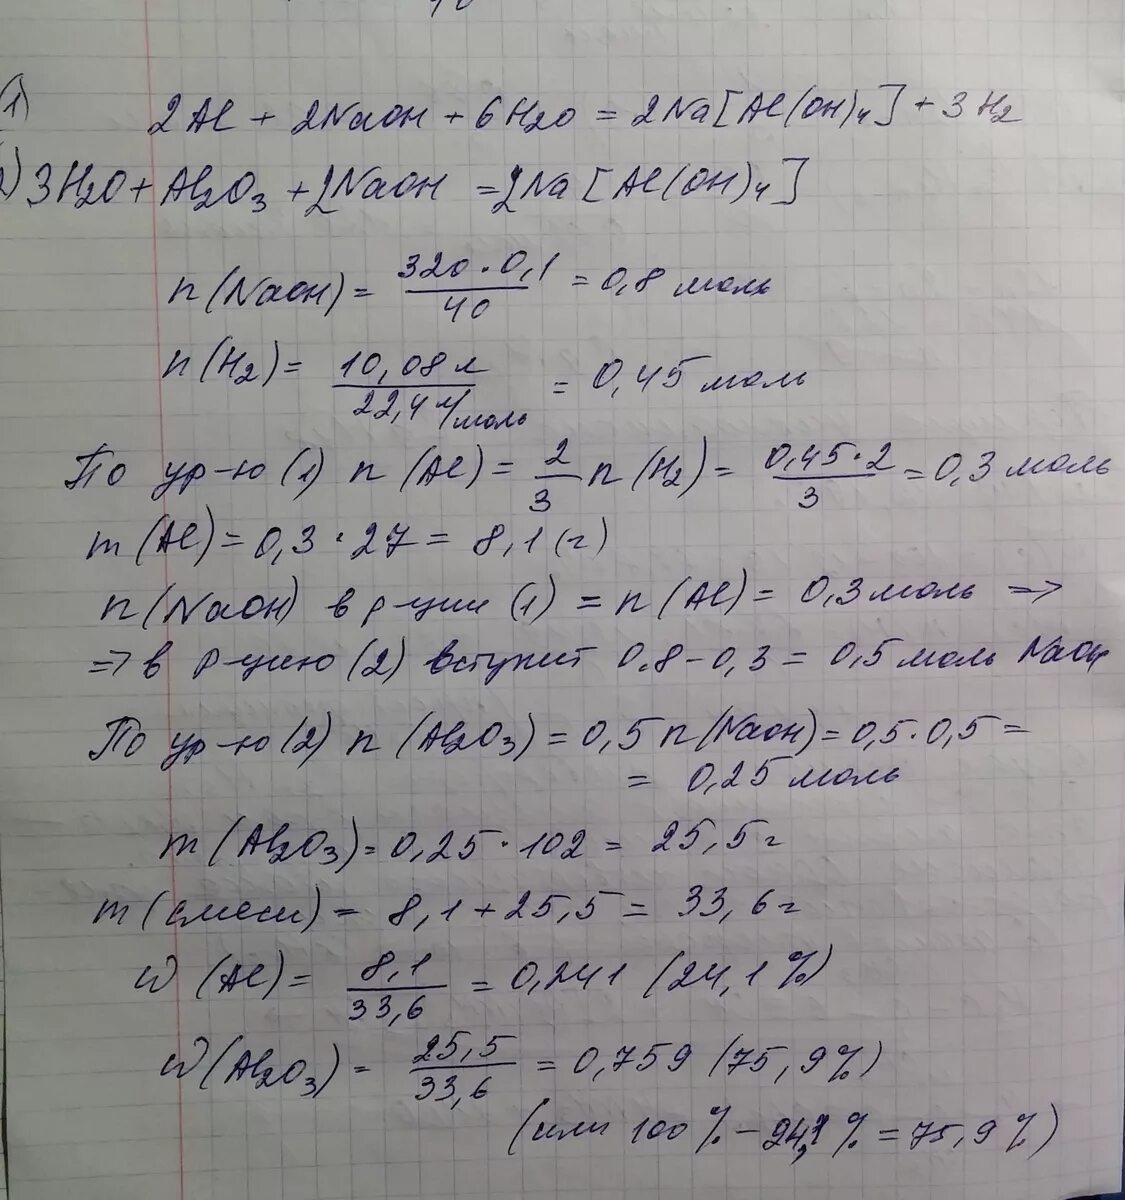 1) 2Al + 2NaOH + 6H2O = 2Na[Al(OH)4] + 3H2
2) 3H2O + Al2O3 + 2NaOH = 2Na[Al(OH)4]
n(NaOH) = 320·0,1/40 = 0,8 моль
n(H2) = 10,08 л/22,4 л/моль = 0,45 моль
По ур-ю (1) n(Al) = 2/3 n(H2) = 0,45·2/3 = 0,3 моль
m(Al) = 0,3·27 = 8,1 (г)
n(NaOH) в р-ции (1) = n(Al) = 0,3 моль =>
=> в р-цию (2) вступит 0.8-0,3 = 0,5 моль NaOH
По ур-ю (2) n(Al2O3) = 0,5 n(NaOH) = 0,5·0,5 =
= 0,25 моль
m(Al2O3) = 0,25·102 = 25,5 г
m(смеси) = 8,1 + 25,5 = 33,6 г
W(Al) = 8,1/33,6 = 0,241 (24,1%)
W(Al2O3) = 25,5/33,6 = 0,759 (75,9%)
(или 100% - 24,1% = 75,9%)